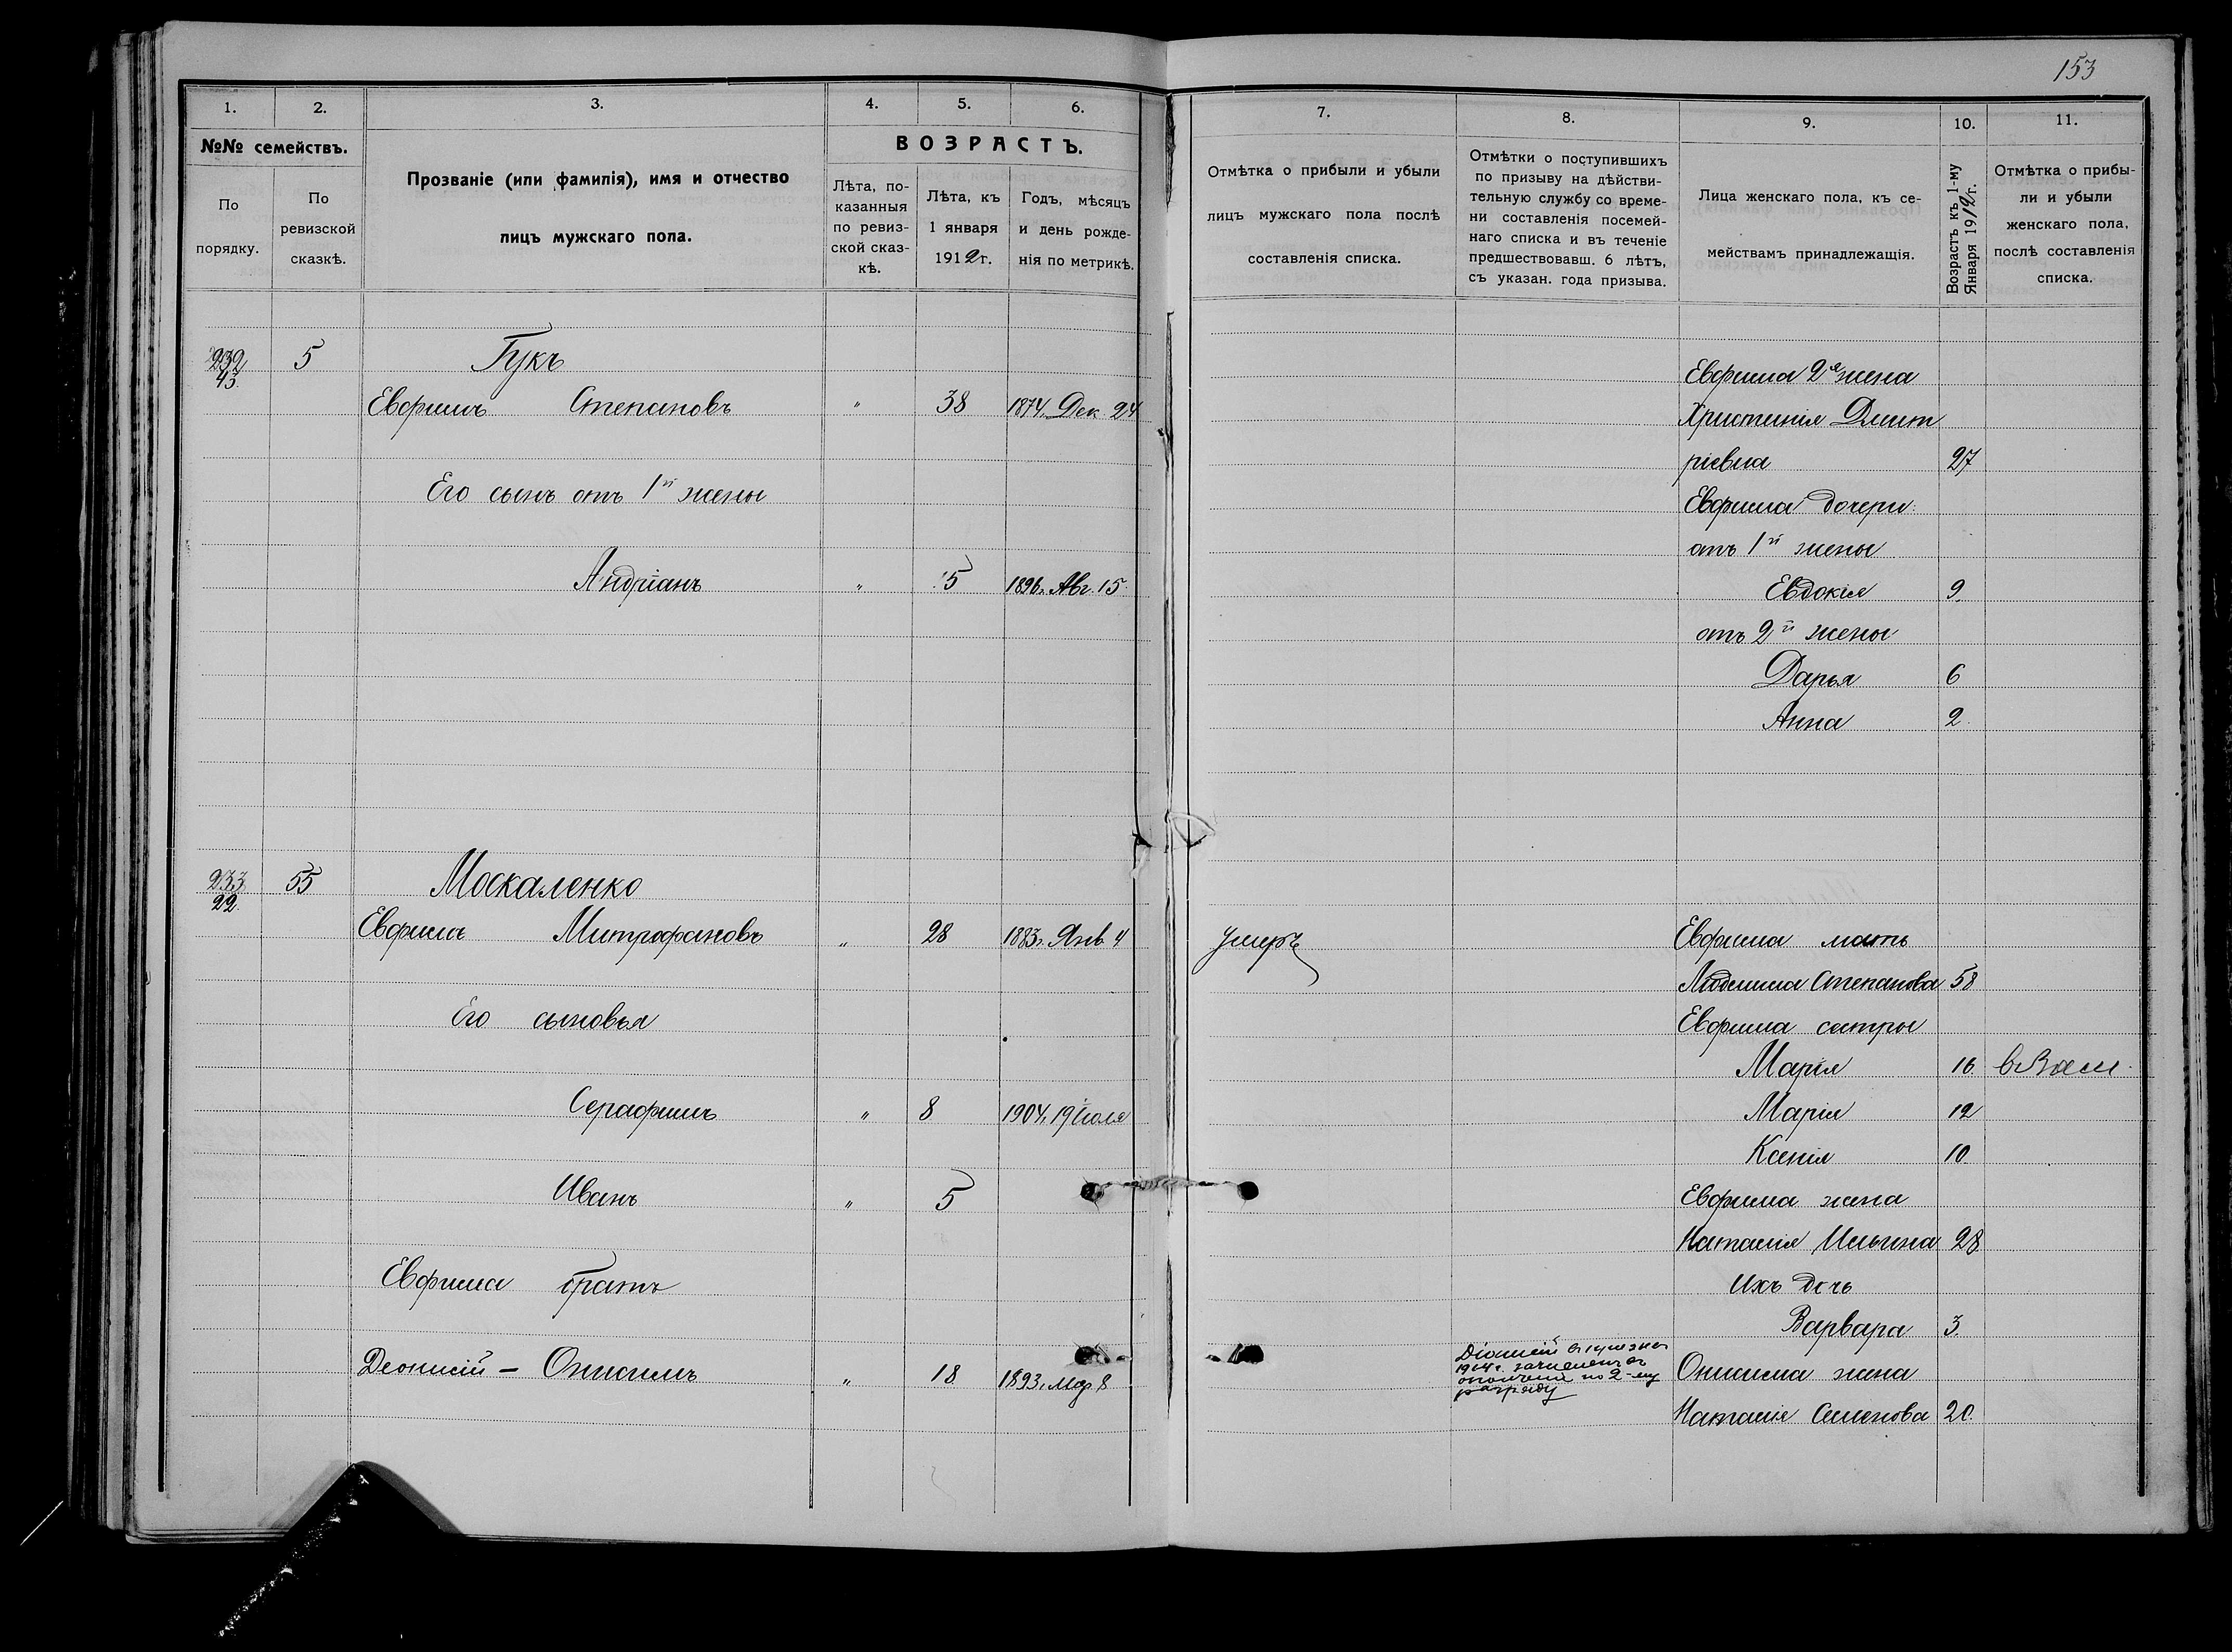 153
1. 2. 3. 4. 5. 6.
№№ семействъ.
По порядку.
По ревизской сказкѣ.
Прозваніе (или фамилія), имя и отчество
лицъ мужскаго пола.
ВОЗРАСТЪ.
Лѣта, по-
казанныя
по ревиз-
ской сказ-
кѣ.
Лѣта, къ
1 января
1912 г.
Годъ, мѣсяцъ
и день рожде-
нія по метрикѣ.
232 5 Гукъ
43
Евфимъ Степановъ " 38 1874. Дек. 24
Его сынъ отъ 1й жены
Андріанъ " 15 1896. Авг. 15
233 55 Москаленко
22
Евфимъ Митрофановъ " 28 1883. Янв. 4
Его сыновья
Серафимъ " 8 1904. 19 Іюля
Иванъ " 5
Евфима братъ
Деонисій – Онисимъ " 18 1893. Мар. 8
7. 8. 9. 10. 11.
Отмѣтка о прибыли и убыли
лицъ мужскаго пола послѣ
составленія списка.
Отмѣтки о поступившихъ
по призыву на дѣйстви-
тельную службу со време-
ни составленія посемей-
наго списка и въ теченіе
предшествовавш. 6 лѣтъ,
съ указан. года призыва.
Лица женскаго пола, къ се-
мействамъ принадлежащія.
Возрастъ къ 1-му
Января 1912 г.
Отмѣтка о прибы-
ли и убыли
женскаго пола,
послѣ составленія
списка.
Евфима 2я жена
Христинія Дмит
ріевна 27
Евфима дочери
отъ 1й жены
Евдокія 9
отъ 2й жены
Дарья 6
Анна 2
умеръ Евфима мать
Людмила Степанова 58
Евфима сестры
Марія 16 в Зам
Марія 12
Ксенія 10
Евфима жена
Наталія Ильина 28
Ихъ дочь
Варвара 3
Діонисій
1914 г. зачисленъ въ
ополченіе по 2-му
разряду
Онисима жена
Наталія Семенова 20